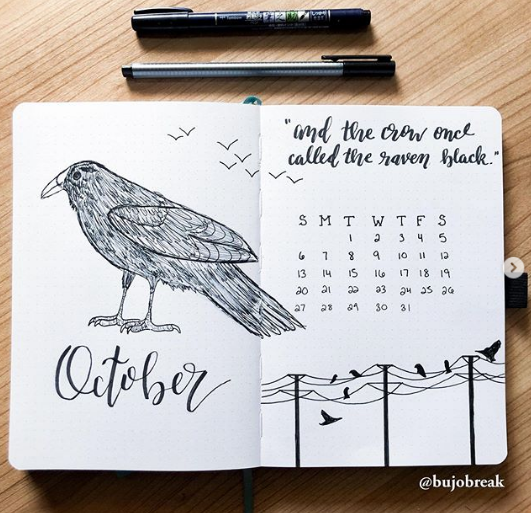 "and the crow once
called the raven black."
S M T W T F S
1 2 3 4 5
6 7 8 9 10 11 12
13 14 15 16 17 18 19
20 21 22 23 24 25 26
27 28 29 30 31
October
@bujobreak